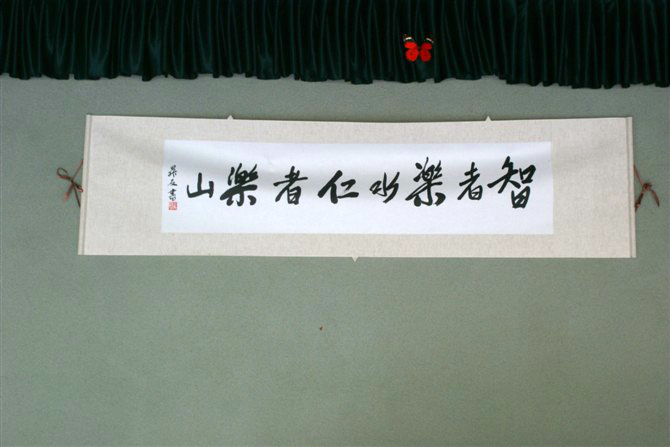 智者樂水仁者樂山